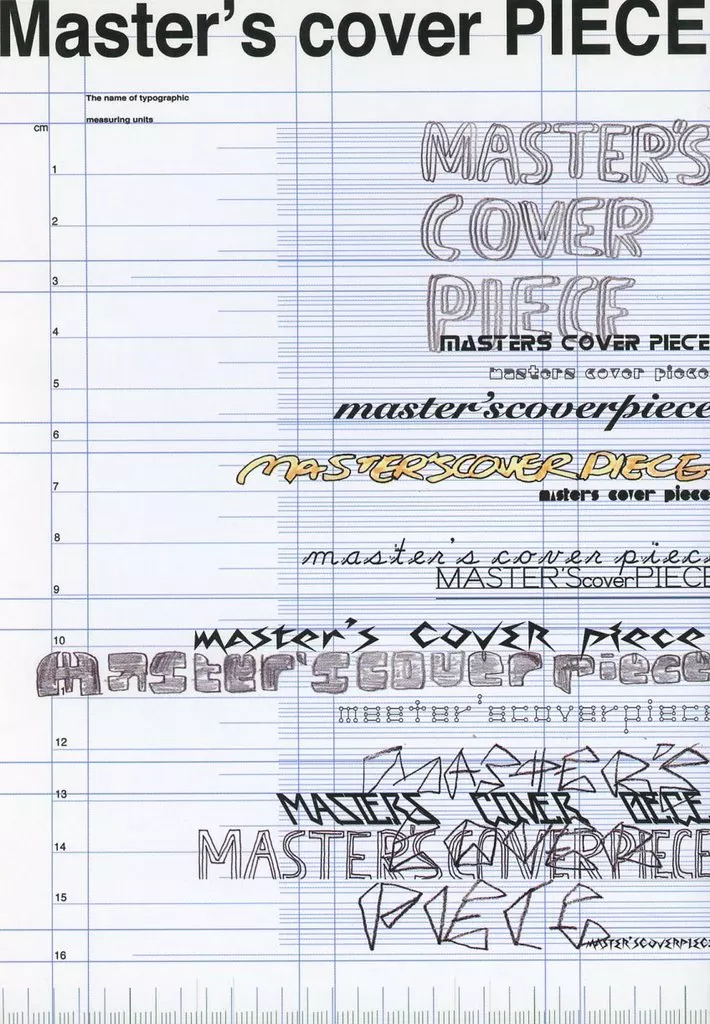 Master's cover PIECE
The name of typographic
measuring units
cm
MASTER'S
1
COVER
2
PIECE
3
4
MASTERS COVER PIECE
masters cover piece
5
master'scoverpiece
6
MASTER'SCOVER PIECE
7
masters cover piece
8
master's cover piece
MASTER'ScoverPIECE
9
master's COVER piece
10
Master's cover piece
11
master'scoverpiece
12
MASTER'S
13
MASTERS COVER PIECE
COVER
14
MASTER'SCOVERPIECE
15
PIECE
MASTER'SCOVERPIECE
16